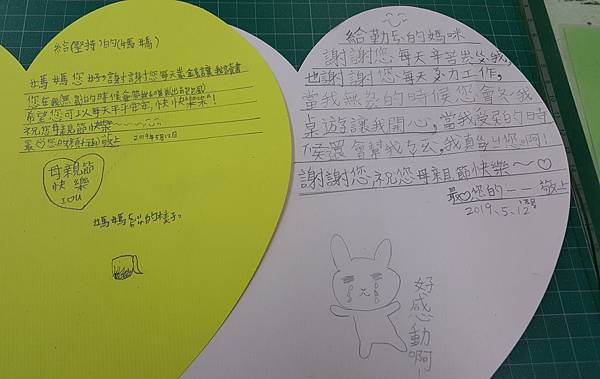 給(堅持)的(媽媽)
媽媽您好,謝謝您每天賺錢讓我讀書
您在我無聊的時候會帶我和
希望您可以每天平平安安,快快樂樂!
祝您母親節快樂~
最♡您的 敬上 2019年5月12日
母親節
快樂
I O U
媽媽 的樣子。
給勤ㄌㄠˊ的媽咪
謝謝您每天辛苦煮ㄈㄢˋ給我,
也謝謝您每天努力工作,
當我無聊的時候您會和我
桌遊讓我開心,當我受傷的時
候還會幫我ㄘㄚ 我真的愛您啊!
謝謝您,祝您母親節快樂~♡
最♡您的一一 敬上
2019.5.12
好感動啊!